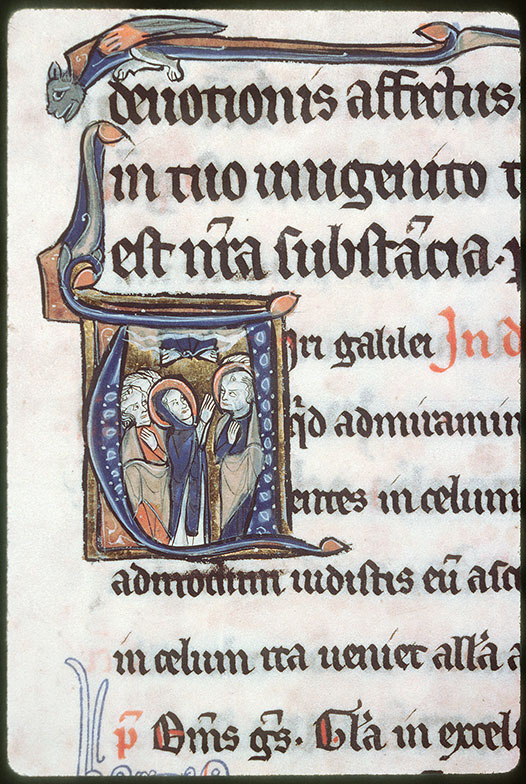 deuotionis affectus
in tuo unigenito t
est nr̃a substãcia. p
Viri galilei In d
qͥd admiramin
entes in celum
admodum uidistis eũ asce
in celum ita ueniet all'a a
p̃ Om̃s gs̃. Gl'a in excel